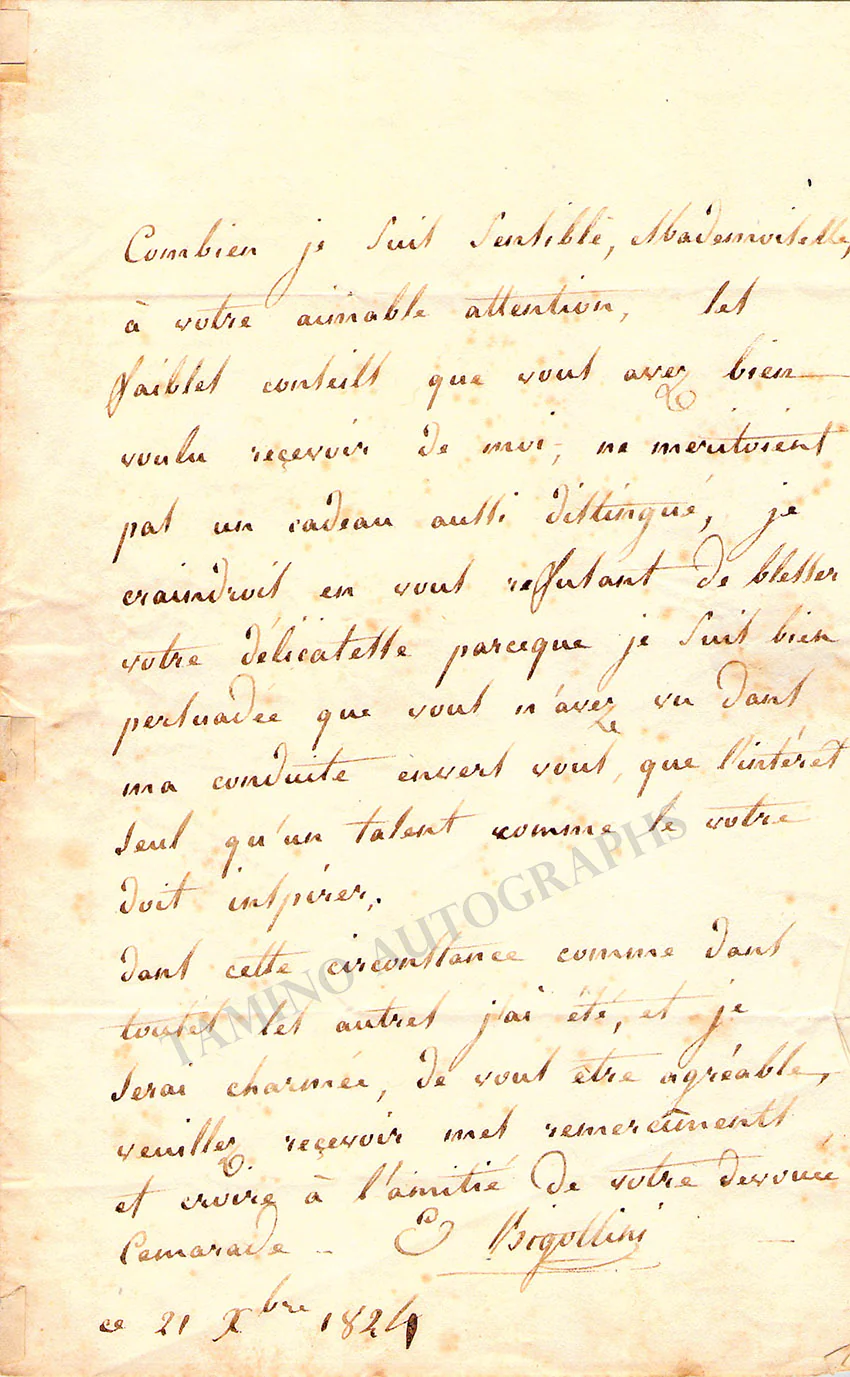 Combien je suis sensible, Mademoiselle,
à votre aimable attention, les
faibles conseils que vous avez bien
voulu reçevoir de moi, ne meritoient
pas un cadeau aussi distingué, je
craindrois en vous reffusant de blesser
votre délicatesse parceque je suis bien
persuadée que vous n'avez vu dans
ma conduite envers vous, que l'intérêt
seul qu'un talent comme le votre
doit inspirer,
dans cette circonstance comme dans
toutes les autres j'ai été, et je
serai charmée, de vous etre agréable,
veuillez reçevoir mes remerciments
et croire à l'amitié de votre devouée
Camarade - E Bigottini
ce 21 Xbre 1824
TAMINO AUTOGRAPHS